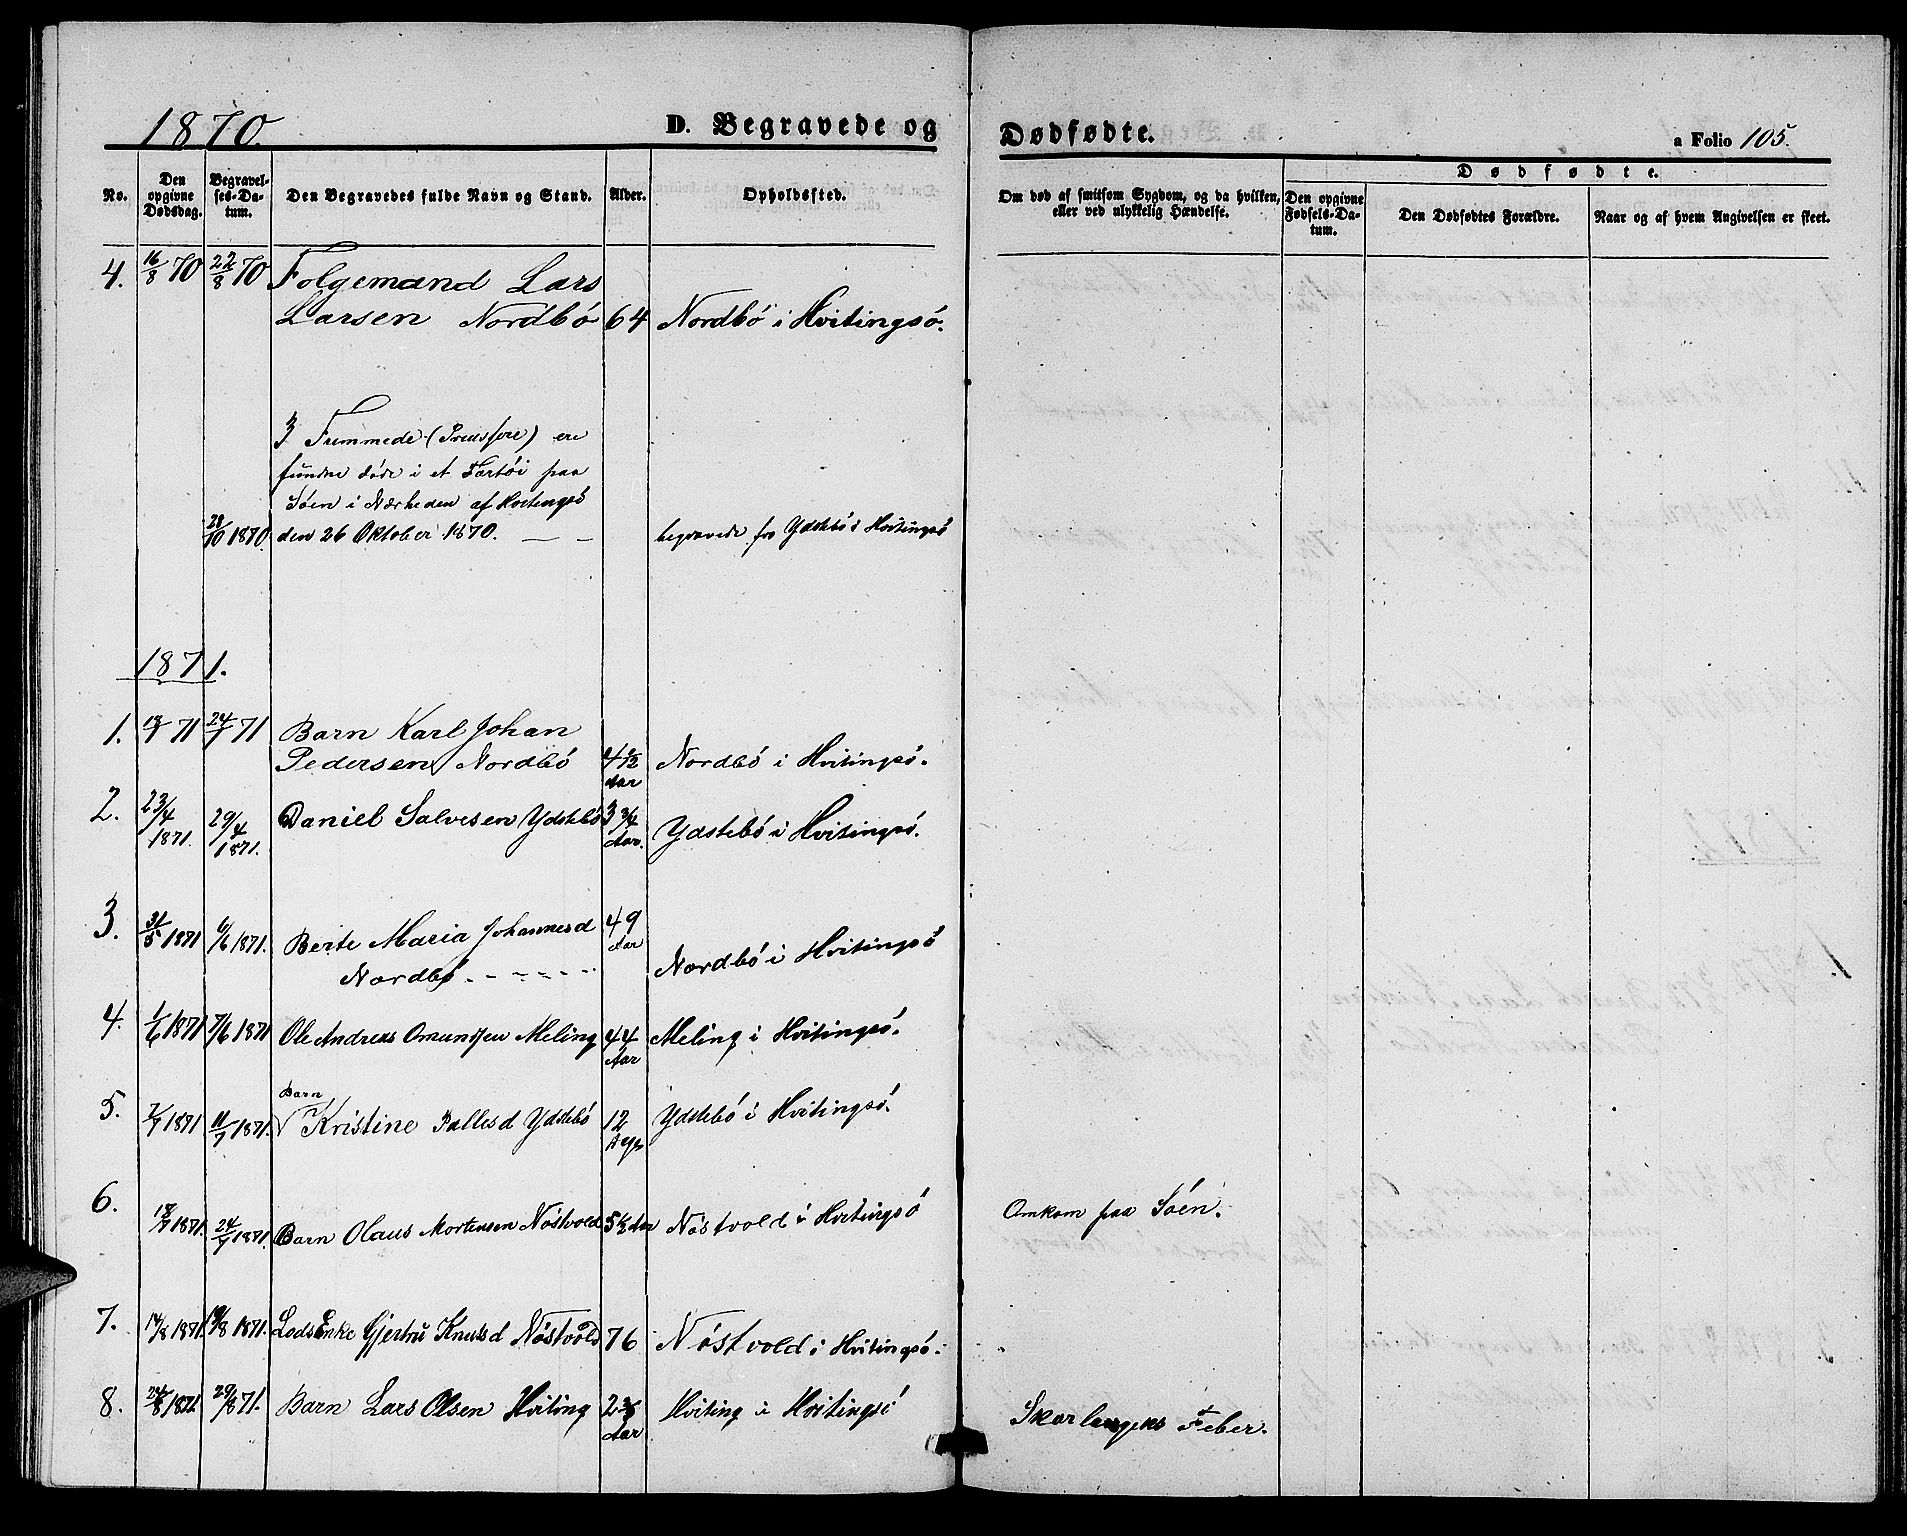 1870. D. Begravede og Dødfødte. a Folio 105.
No. Den opgivne Dødsdag. Begravel-ses-Da-tum. Den Begravedes fulde Navn og Stand. Alder. Opholdssted. Om død af smitsom Sygdom, og da hvilken, eller ved ulykkelig Hændelse. Dødfødte. Den opgivne Fødsels-Da-tum. Den Dødfødtes Forældre. Naar og af hvem Angivelsen er skeet.
4. 16/8 70 22/8 70 Folgemand Lars
Larsen Nordbó 64 Nordbó i Hvitingsó.
3 Fremmede (Preusere) ere
fundne døde i et Fartói paa
Sóen i Nærheden af Hvitingsó
28/10 1870. den 26 Oktober 1870. — — begravede fra Ydstebó i Hvitingsó
1871.
1. 71 24/1 71 Barn Karl Johan
Pedersen Nordbó 4 Aar Nordbó i Hvitingsó.
2. 23/4 1871. 29/4 1871. Daniel Salvesen Ydstebó 3 3/4 Aar. Ydstebó i Hvitingsó.
3. 31/5 1871 6/6 1871. Berte Maria Johannesd 49 Aar
Nordbó. - - - - - Nordbó i Hvitingsó
4. 1/6 1871 7/6 1871 Ole Andreas Omundsen Meling 44 Aar Meling i Hvitingsó.
5. 7/7 1871 11/7 1871. Barn
Kristine Pallesd Ydstebó 12 Dage Ydstebó i Hvitingsó.
6. 18/7 1871. 24/7 1871. Barn Olaus Mortensen Nóstvold 5 1/2 Aar Nóstvold i Hvitingsó Omkom paa Sóen.
7. 14/8 1871. 19/8 1871. Lods Enke Gjertru Knutsd Nóstvold 76 Nóstvold i Hvitingsó.
8. 24/8 1871 29/8 71. Barn Lars Olsen Hviting 2 Aar Hviting i Hvitingsó Skarlagens Feber.